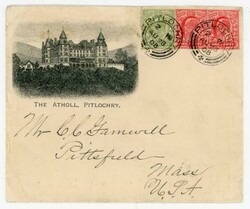 THE ATHOLL, PITLOCHRY.
Mr. C. C. Gamwell
Pittsfield
Mass
U.S.A